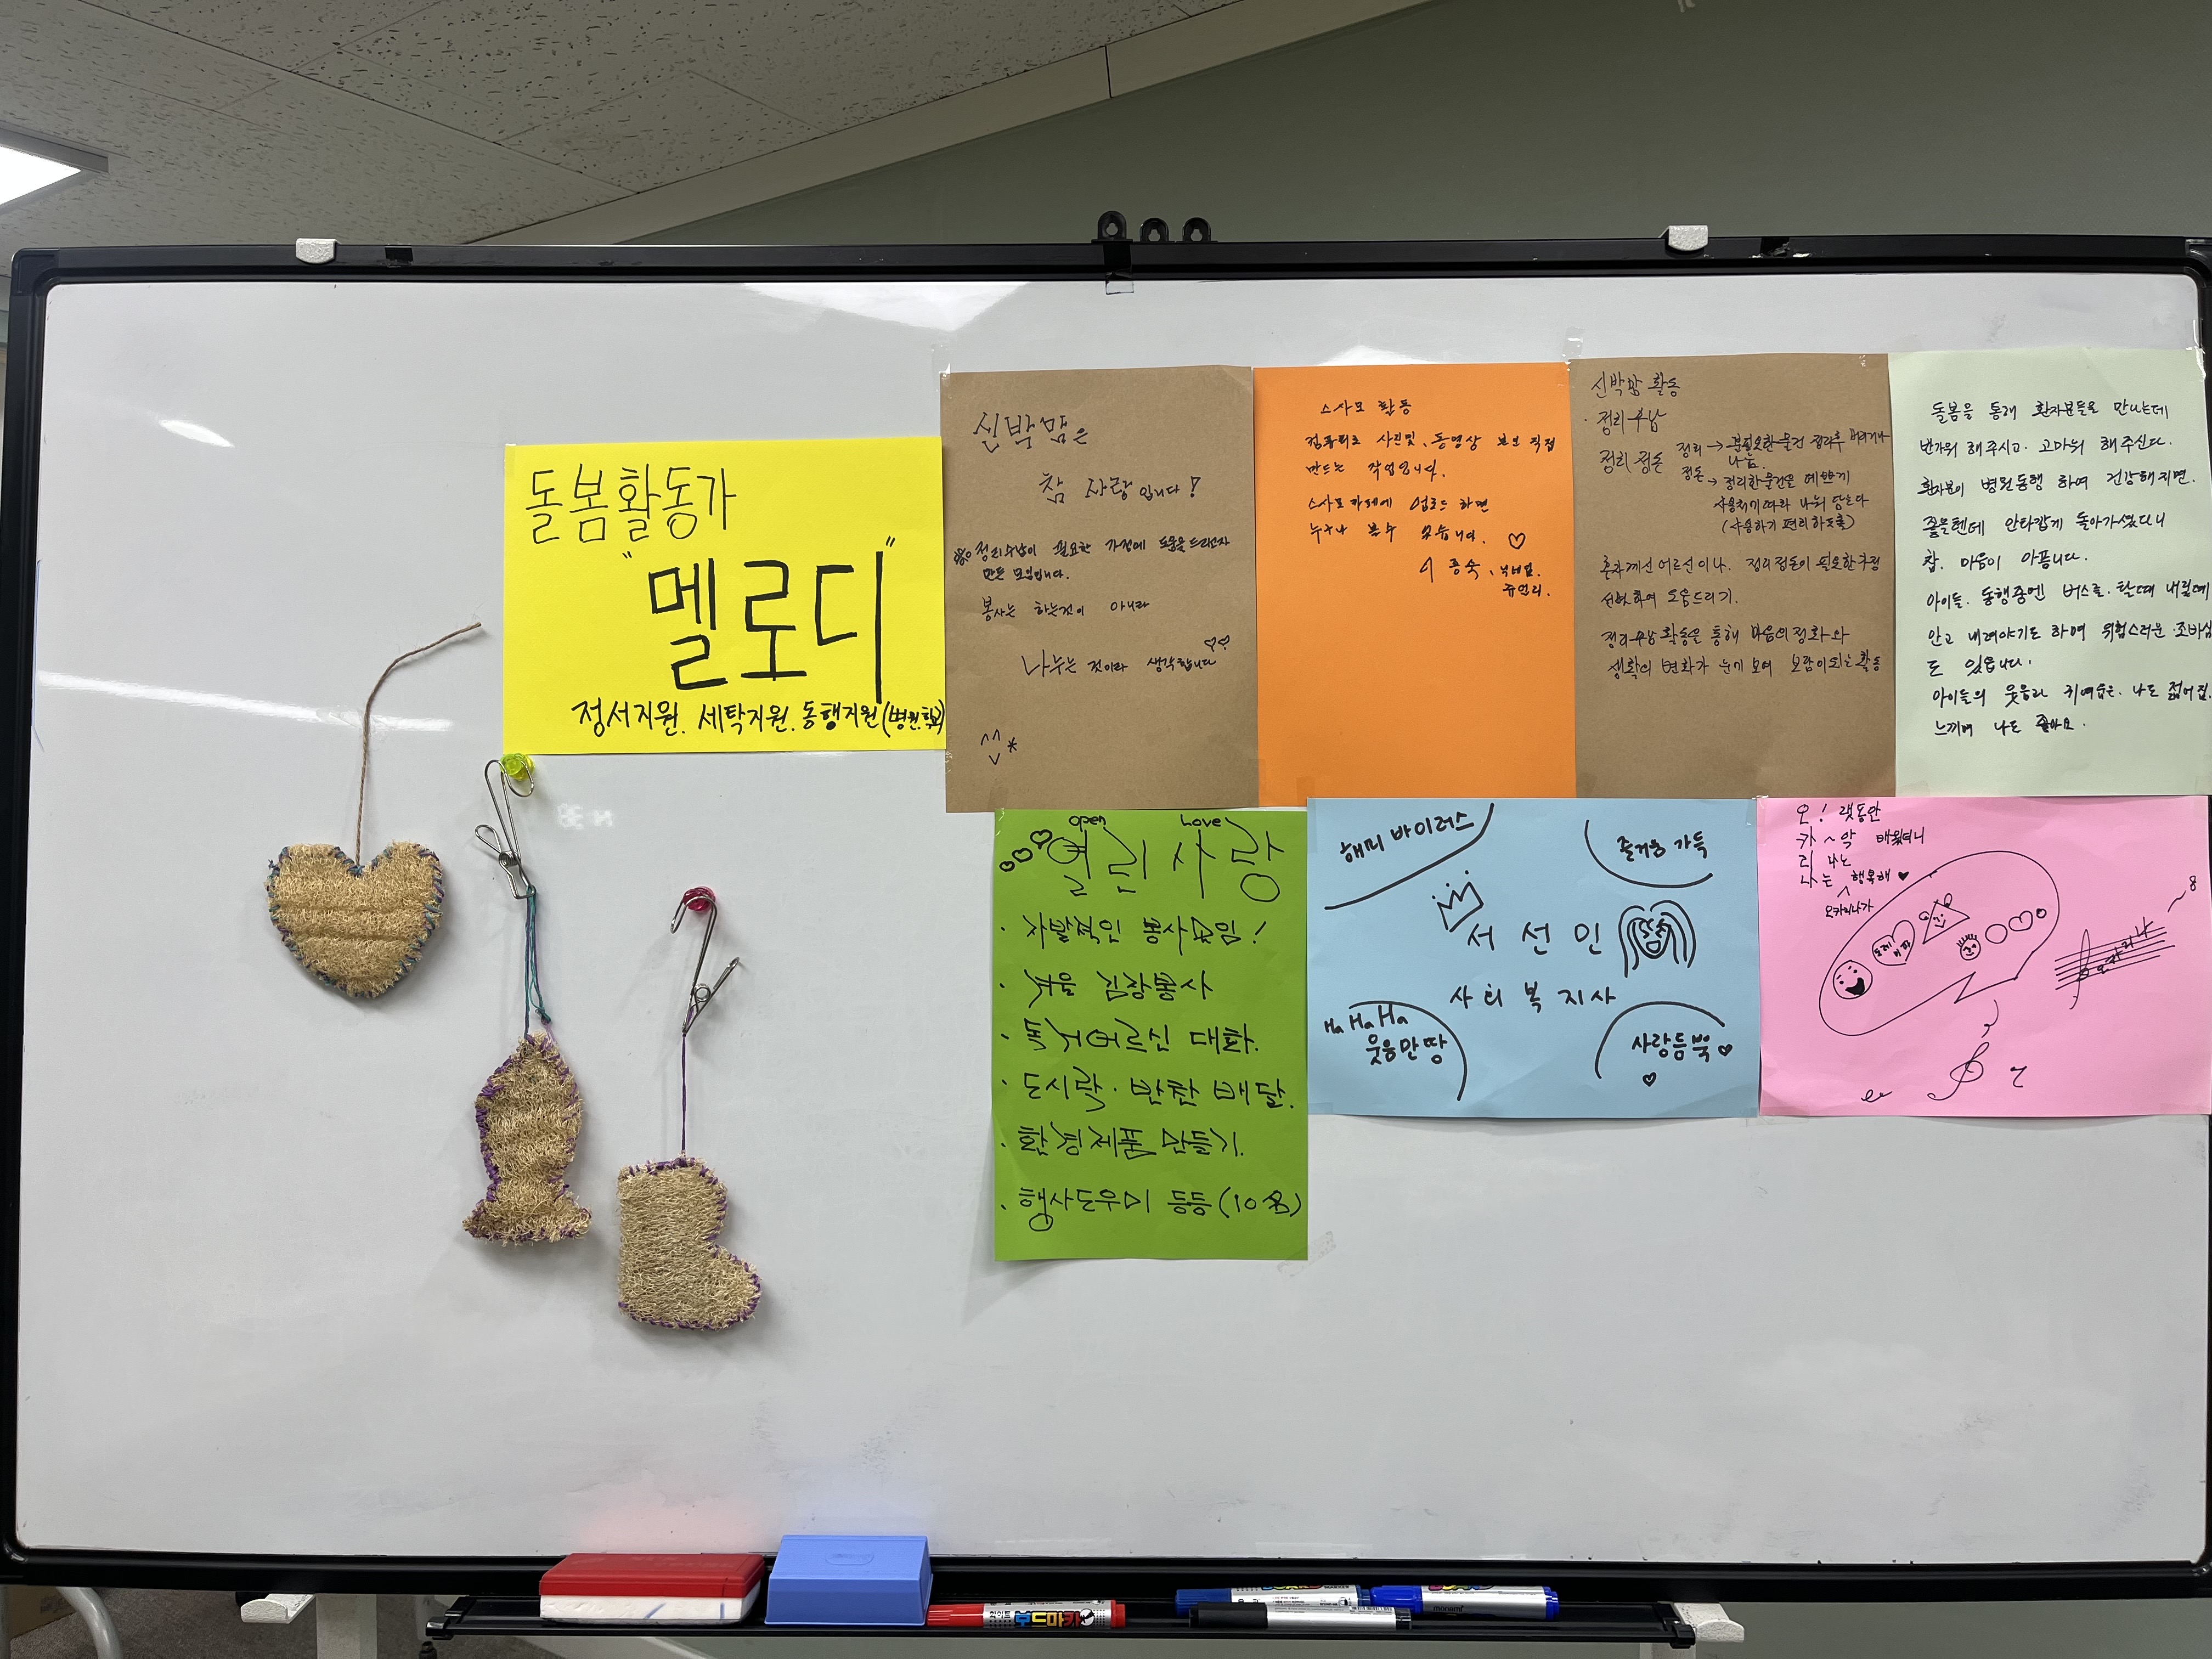 돌봄활동가
"멜로디"
정서지원. 세탁지원. 동행지원(병원.학교)
신박맘은
참 사랑입니다!
정리수납이 필요한 가정에 도움을 드리고자
만든 모임입니다.
봉사는 하는것이 아니라
나누는 것이라 생각합니다
스사모 활동
컴퓨터로 사진및, 동영상 보면 직접
만드는 작업입니다.
스사모 카페에 업로드 하면
누구나 볼수 있습니다.
신박맘 활동
· 정리수납
정리 정돈
정리 → 불필요한 물건 정리후 버리거나
나눔.
정돈 → 정리한물건은 예쁘게
사용처기따라 나눠 담는다
(사용하기 편리하도록)
혼자계신 어르신이나. 정리정돈이 필요한 가정
선정하여 도움드리기.
정리수납 활동을 통해 마음의 정화와
생활의 변화가 눈에 보여 보람이되는 활동
돌봄을 통해 환자분들을 만나는데
반가워 해주시고. 고마워 해주신다.
환자분이 병원동행 하여 건강해지면.
좋을텐데 안타깝게 돌아가셨다니
참. 마음이 아픕니다.
아이들. 동행중엔 버스를. 탈때 내릴때
안고 내려야기도 하여 위험스러운 조바심
도 있읍니다.
아이들의 웃음과 귀여습은. 나도 젊어짐.
느끼며 나도 좋아요.
open Love
열린사랑
· 자발적인 봉사모임!
· 겨울 김장봉사
· 독거어르신 대화.
· 도시락·반찬 배달.
· 환경제품 만들기.
· 행사도우미 등등 (10명)
해피 바이러스
즐거움 가득
서선민
사회복지사
Ha Ha Ha
웃음만땅
사랑듬뿍
오! 랫동안
카~악 배웠더니
리 나는
나는 행복해
오카리나가
도레미파
오카리나
보드마카
monami